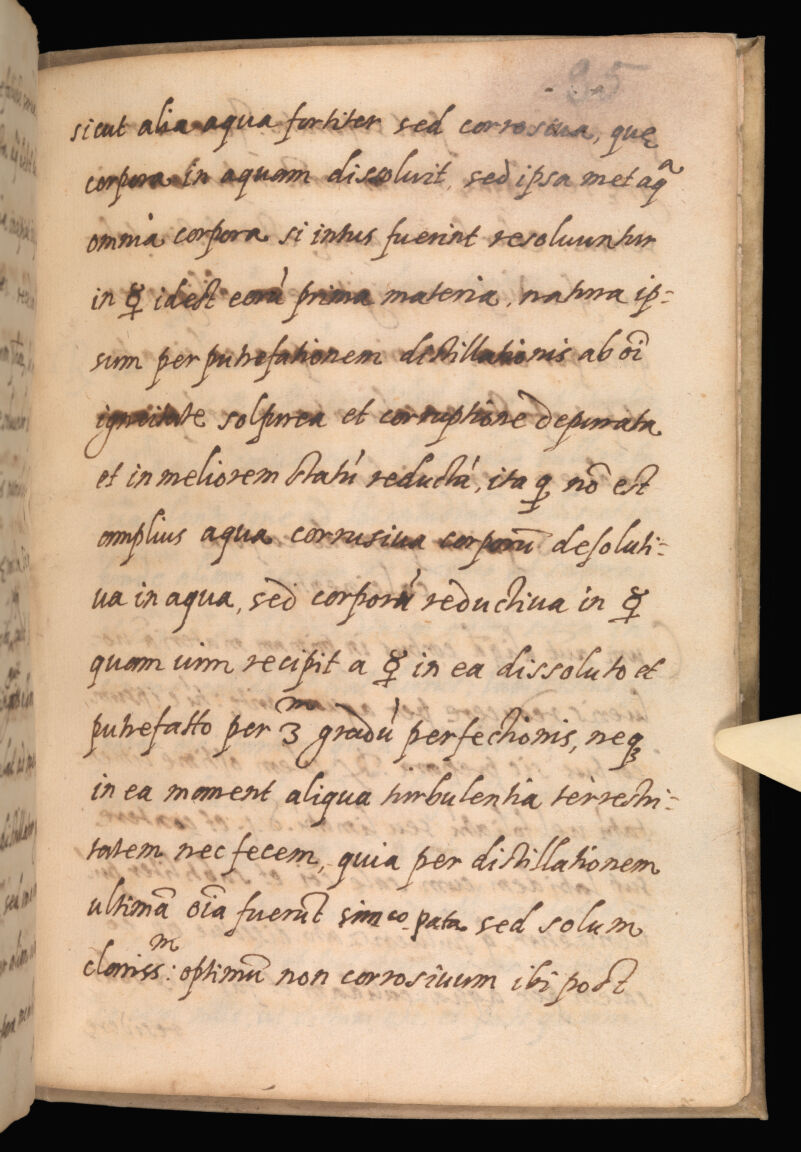 85
sicut alia aqua fortiter sed corrosiua, quę
corpora in aquam dissoluit, sed ipsa met aq̃ᵃ
omnia corpora si intus fuerint resoluuntur
in ☿ idest eorũ prima materia, natura ip=
sum per putrefationem distillationis ab oĩ
igneitate solfurea et corruptione depurata
et in meliorem statũ reductá, ita q nõ est
amplius aqua corrusiua corporũ desoluti=
ua in aqua, sed corporũ reductiua in ☿
quam uim recipit a ☿ in ea dissoluto et
putrefatto per 3ᵐ gradũ perfectionis, neq
in ea manent aliqua turbulentia terrestri=
tatem nec fecem, quia per distillationem
ultimã oĩa fuerũt sincopata sed solum
clariss:ᵐ optimũ non corrosiuum ibi post